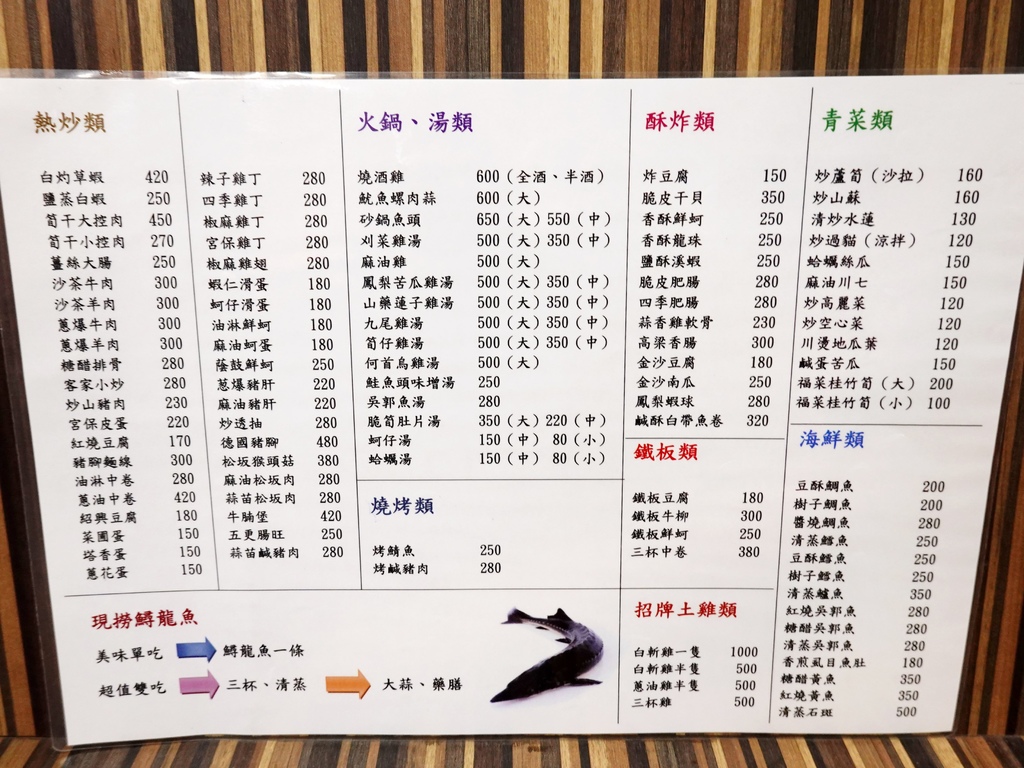 熱炒類
白灼草蝦 420
鹽蒸白蝦 250
筍干大控肉 450
筍干小控肉 270
薑絲大腸 250
沙茶牛肉 300
沙茶羊肉 300
蔥爆牛肉 300
蔥爆羊肉 300
糖醋排骨 280
客家小炒 280
炒山豬肉 230
宮保皮蛋 220
紅燒豆腐 170
豬腳麵線 300
油淋中卷 280
蔥油中卷 420
紹興豆腐 180
菜圃蛋 150
塔香蛋 150
蔥花蛋 150
辣子雞丁 280
四季雞丁 280
椒麻雞丁 280
宮保雞丁 280
椒麻雞翅 280
蝦仁滑蛋 180
蚵仔滑蛋 180
油淋鮮蚵 180
麻油蚵蛋 180
蔭鼓鮮蚵 250
蔥爆豬肝 220
麻油豬肝 220
炒透抽 280
德國豬腳 480
松坂猴頭菇 380
麻油松坂肉 280
蒜苗松坂肉 280
牛腩堡 420
五更腸旺 250
蒜苗鹹豬肉 280
火鍋、湯類
燒酒雞 600（全酒、半酒）
魷魚螺肉蒜 600（大）
砂鍋魚頭 650（大）550（中）
刈菜雞湯 500（大）350（中）
麻油雞 500（大）
鳳梨苦瓜雞湯 500（大）350（中）
山藥蓮子雞湯 500（大）350（中）
九尾雞湯 500（大）350（中）
筍仔雞湯 500（大）350（中）
何首烏雞湯 500（大）
鮭魚頭味增湯 250
吳郭魚湯 280
脆筍肚片湯 350（大）220（中）
蚵仔湯 150（中） 80（小）
蛤蠣湯 150（中） 80（小）
燒烤類
烤鯖魚 250
烤鹹豬肉 280
酥炸類
炸豆腐 150
脆皮干貝 350
香酥鮮蚵 250
香酥龍珠 250
鹽酥溪蝦 250
脆皮肥腸 280
四季肥腸 280
蒜香雞軟骨 230
高梁香腸 300
金沙豆腐 180
金沙南瓜 250
鳳梨蝦球 280
鹹酥白帶魚卷 320
鐵板類
鐵板豆腐 180
鐵板牛柳 300
鐵板鮮蚵 250
三杯中卷 380
招牌土雞類
白斬雞一隻 1000
白斬雞半隻 500
蔥油雞半隻 500
三杯雞 500
青菜類
炒蘆筍（沙拉） 160
炒山蘇 160
清炒水蓮 130
炒過貓（涼拌） 120
蛤蠣絲瓜 150
麻油川七 150
炒高麗菜 120
炒空心菜 120
川燙地瓜葉 120
鹹蛋苦瓜 150
福菜桂竹筍（大） 200
福菜桂竹筍（小） 100
海鮮類
豆酥鯛魚 200
樹子鯛魚 200
醬燒鯛魚 280
清蒸鱈魚 250
豆酥鱈魚 250
樹子鱈魚 250
清蒸鱸魚 350
紅燒吳郭魚 280
糖醋吳郭魚 280
清蒸吳郭魚 280
香煎虱目魚肚 180
糖醋黃魚 350
紅燒黃魚 350
清蒸石斑 500
現撈鱘龍魚
美味單吃 鱘龍魚一條
超值雙吃 三杯、清蒸 大蒜、藥膳